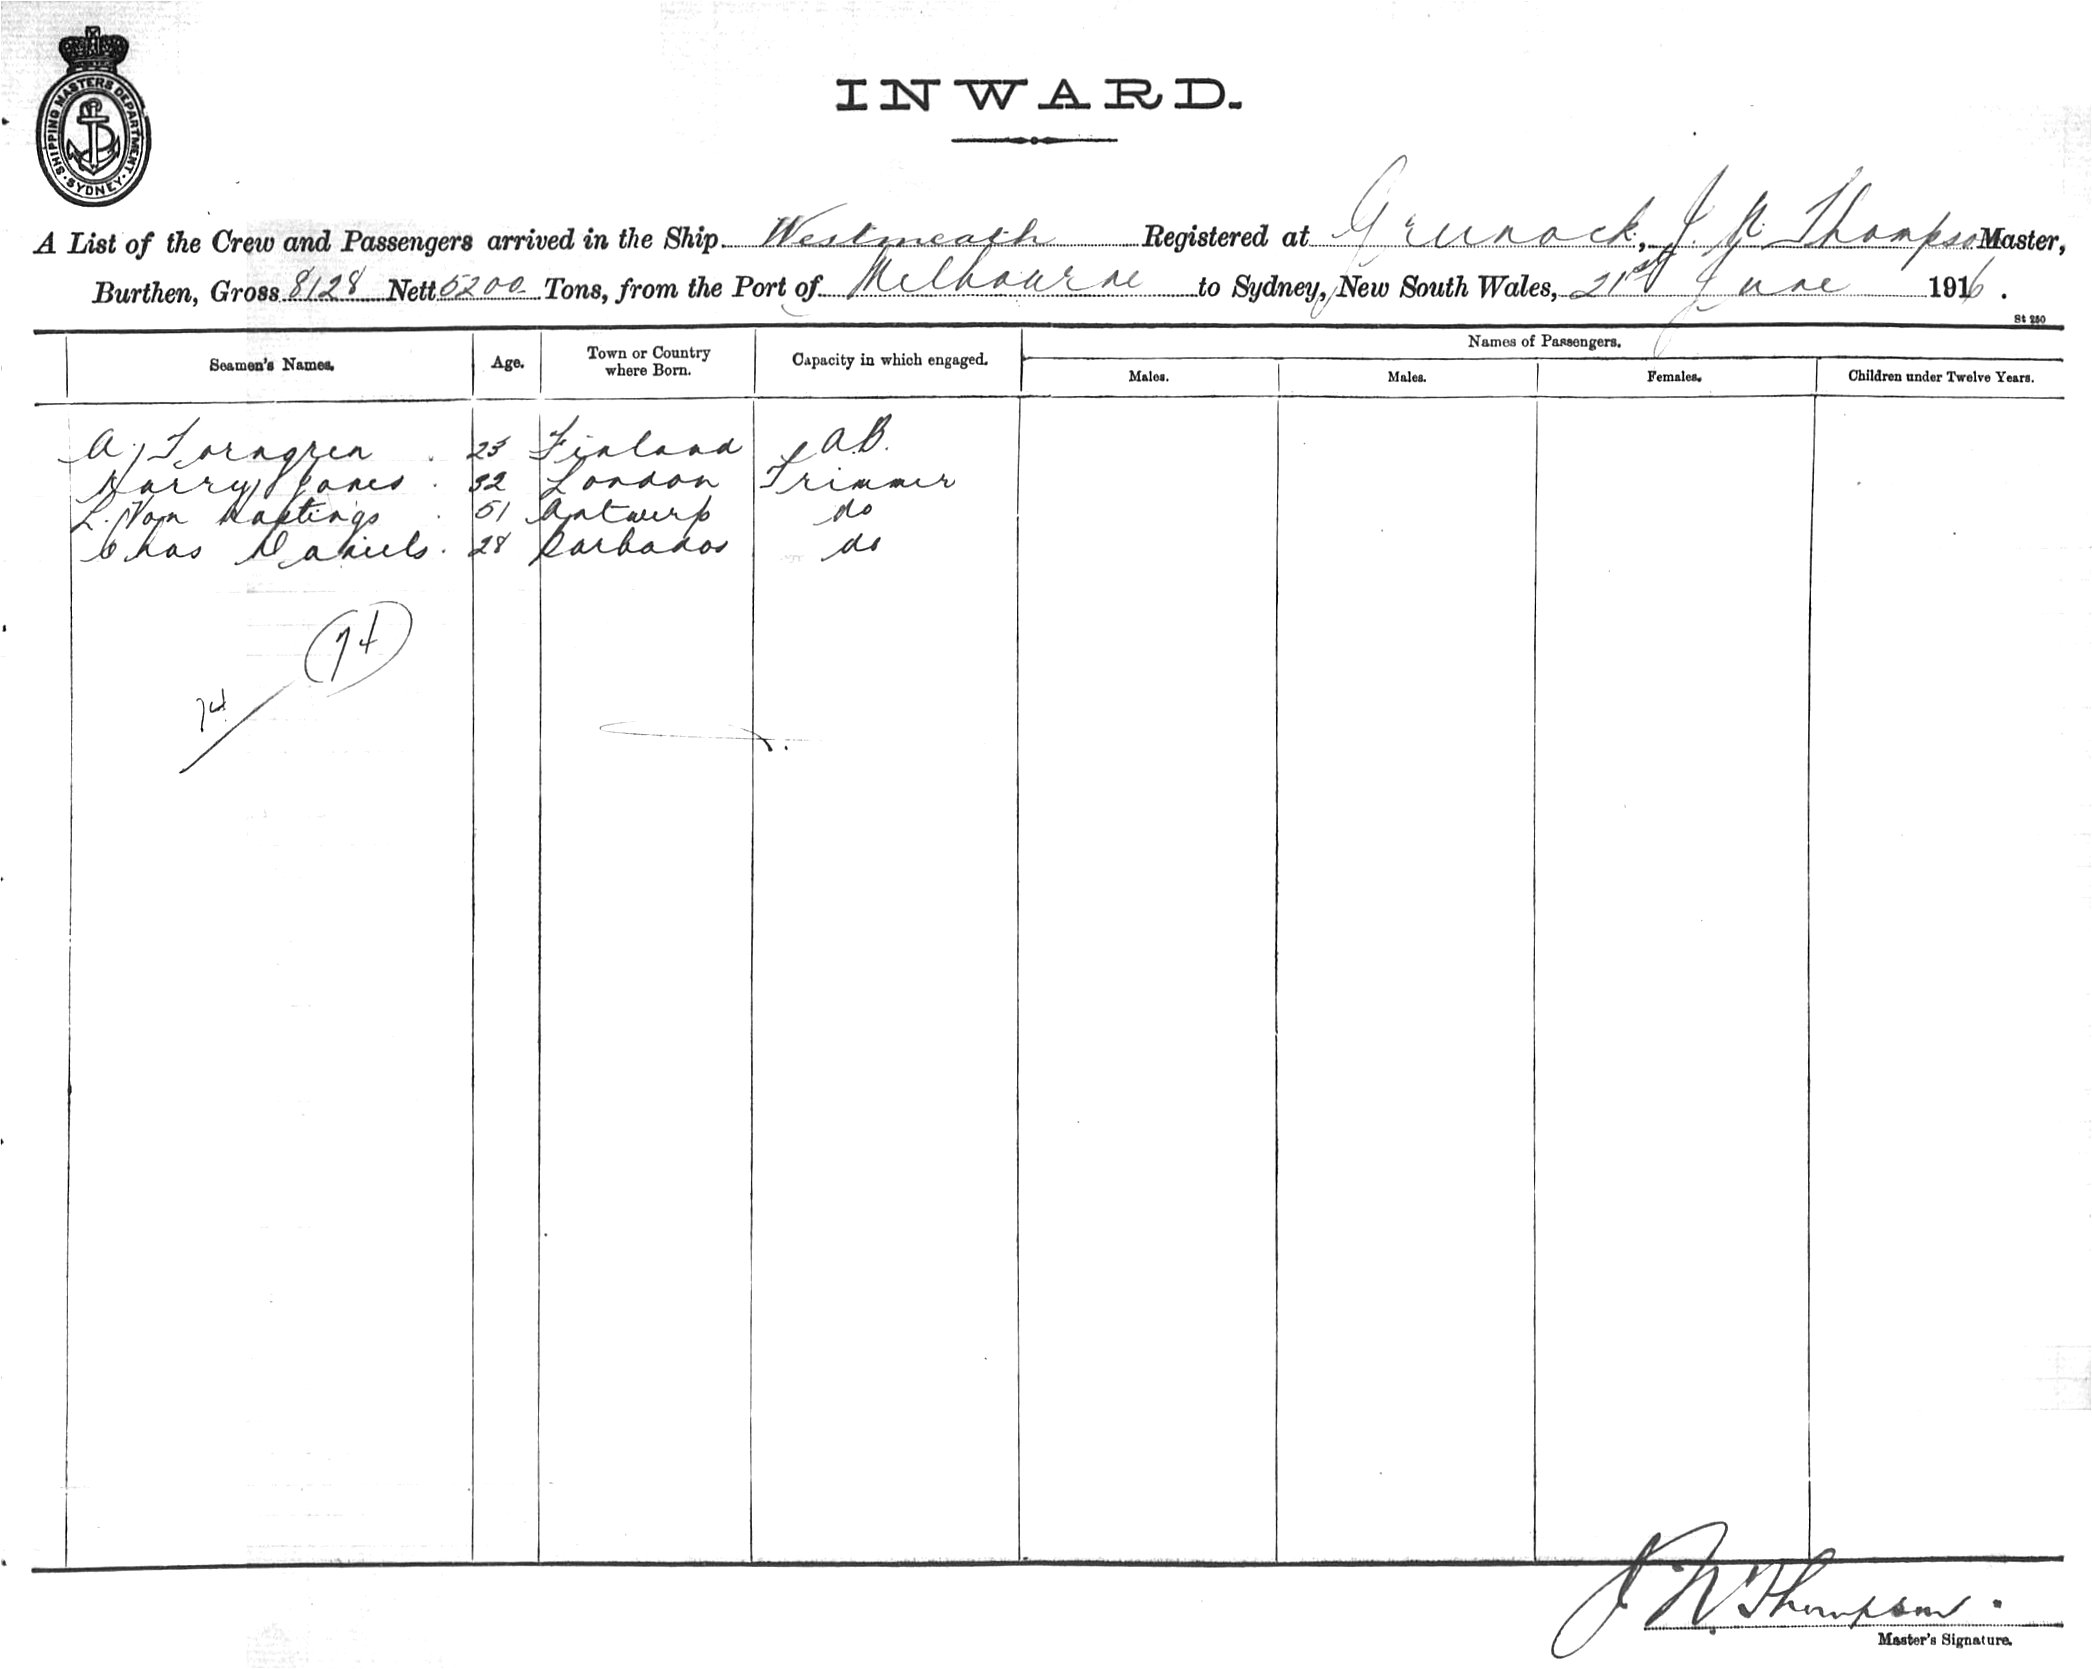 SHIPPING MASTERS DEPARTMENT SYDNEY
INWARD.
A List of the Crew and Passengers arrived in the Ship Westmeath Registered at Greenock, J. N. Thompson Master,
Burthen, Gross 8128 Nett 5200 Tons, from the Port of Melbourne to Sydney, New South Wales, 21st June 1916.
St 250
Seamen's Names. Age. Town or Country where Born. Capacity in which engaged. Names of Passengers.
Males. Males. Females. Children under Twelve Years.
A. Torngren 23 Finland A.B.
Harry Jones 32 London Trimmer
L. Van Hastings 51 Antwerp do
Chas Daniels 28 Barbados do
74
74
J N Thompson
Master's Signature.